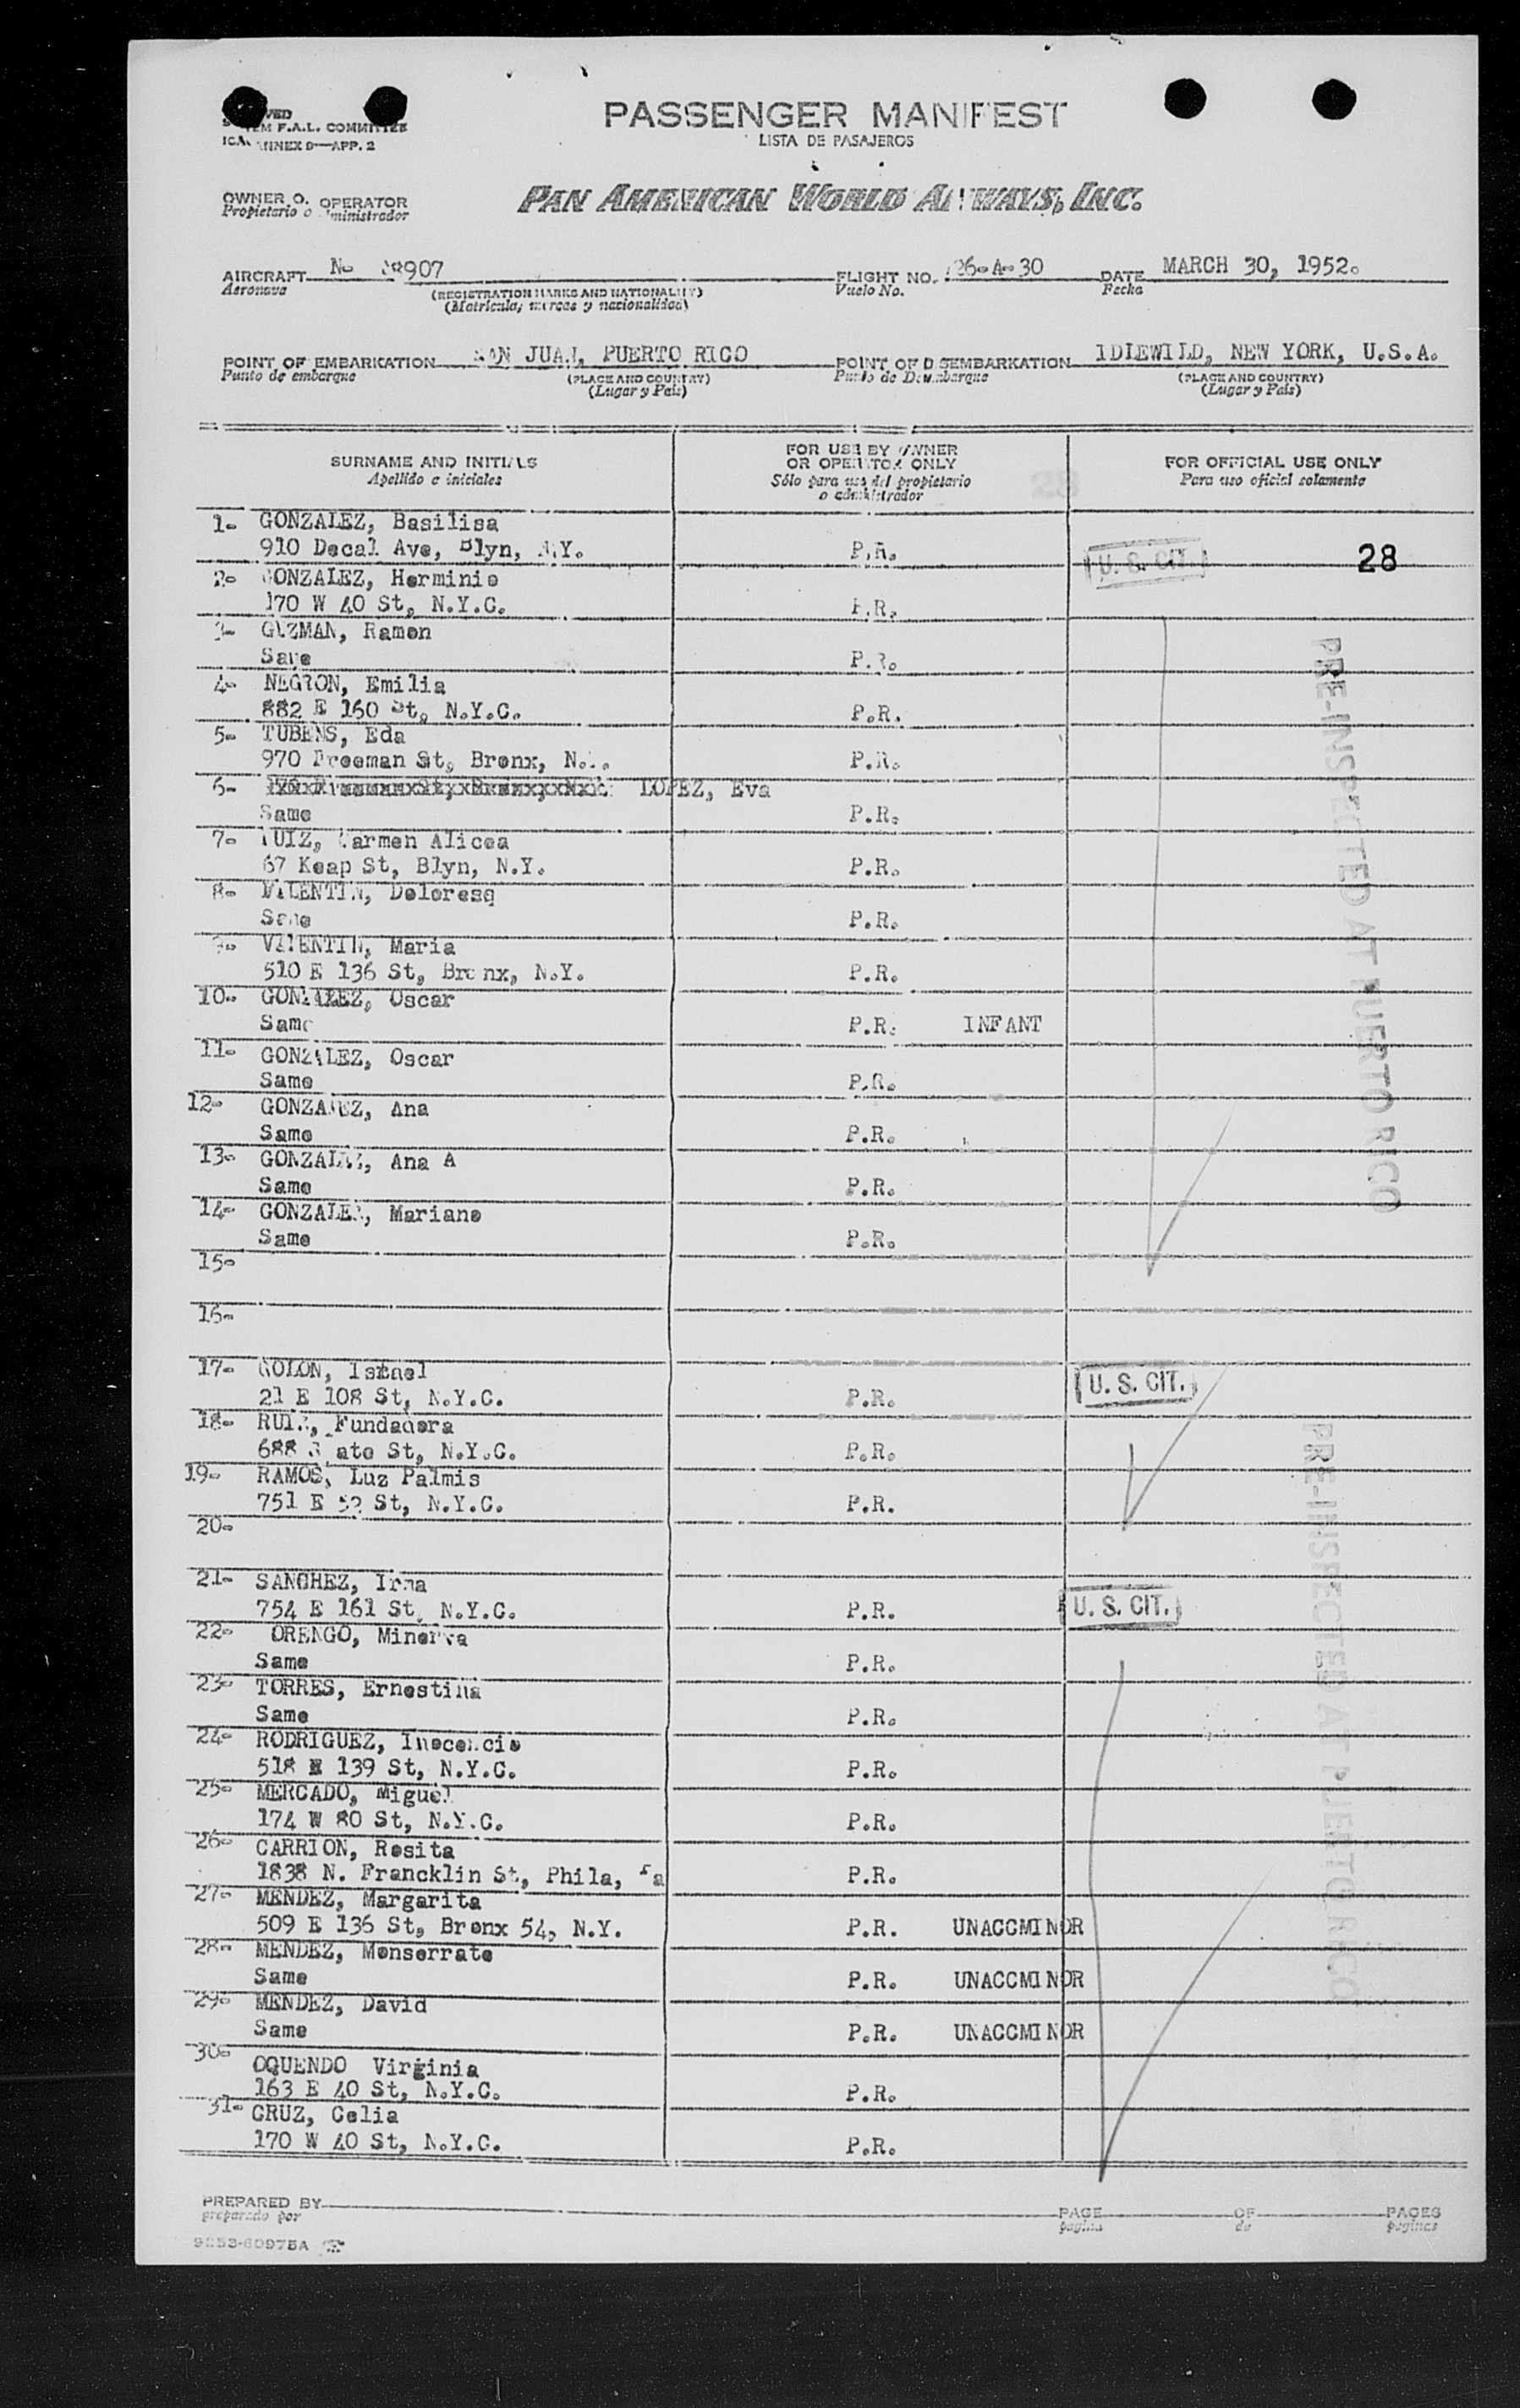 PASSENGER MANIFEST
LISTA DE PASAJEROS
F.A.L. COMMITTEE
ANNEX 9—APP. 2
OWNER O. OPERATOR
Propietario o
PAN AMERICAN WORLD AIRWAYS, INC.
AIRCRAFT No 907 FLIGHT NO. 26-A-30 DATE MARCH 30, 1952.
Aeronave (REGISTRATION MARKS AND NATIONALITY) Vuelo No. Fecha
(Matrícula, marcas y nacionalidad)
POINT OF EMBARKATION SAN JUAN, PUERTO RICO POINT OF DISEMBARKATION IDLEWILD, NEW YORK, U.S.A.
Punto de embarque (PLACE AND COUNTRY) Punto de Desembarque (PLACE AND COUNTRY)
(Lugar y País) (Lugar y País)
SURNAME AND INITIALS FOR USE BY OWNER OR OPERATOR ONLY FOR OFFICIAL USE ONLY
Apellido e iniciales Sólo para uso del propietario o administrador Para uso oficial solamente
1- GONZALEZ, Basilisa
910 Decal Ave, Blyn, N.Y. P.R. U. S. CIT. 28
2- GONZALEZ, Herminio
170 W 40 St, N.Y.C. P.R.
3- GUZMAN, Ramon
Same P.R.
4- NEGRON, Emilia
882 E 160 St, N.Y.C. P.R.
5- TUBENS, Eda
970 Freeman St, Bronx, N.Y. P.R.
6- LOPEZ, Eva
Same P.R.
7- RUIZ, Carmen Alicea
67 Keap St, Blyn, N.Y. P.R.
8- VALENTIN, Doloresq
Same P.R.
9- VALENTIN, Maria
510 E 136 St, Bronx, N.Y. P.R.
10- GONZALEZ, Oscar
Same P.R. INFANT
11- GONZALEZ, Oscar
Same P.R.
12- GONZALEZ, Ana
Same P.R.
13- GONZALEZ, Ana A
Same P.R.
14- GONZALEZ, Mariano
Same P.R.
PRE-INSPECTED AT PUERTO RICO
15-
16-
17- COLON, Ismael
21 E 108 St, N.Y.C. P.R. U. S. CIT.
18- RUIZ, Fundadora
688 St, N.Y.C. P.R.
19- RAMOS, Luz Palmis
751 E 52 St, N.Y.C. P.R.
20-
21- SANCHEZ, Irma
754 E 161 St, N.Y.C. P.R. U. S. CIT.
22- ORENGO, Minerva
Same P.R.
23- TORRES, Ernestina
Same P.R.
24- RODRIGUEZ, Inocencio
518 E 139 St, N.Y.C. P.R.
25- MERCADO, Miguel
174 W 80 St, N.Y.C. P.R.
26- CARRION, Rosita
1838 N. Francklin St, Phila, Pa P.R.
27- MENDEZ, Margarita
509 E 136 St, Bronx 54, N.Y. P.R. UNACCMINOR
28- MENDEZ, Monserrate
Same P.R. UNACCMINOR
29- MENDEZ, David
Same P.R. UNACCMINOR
30- OQUENDO Virginia
163 E 40 St, N.Y.C. P.R.
31- CRUZ, Celia
170 W 40 St, N.Y.C. P.R.
PRE-INSPECTED AT PUERTO RICO
PREPARED BY PAGE OF PAGES
preparado por pagina de paginas